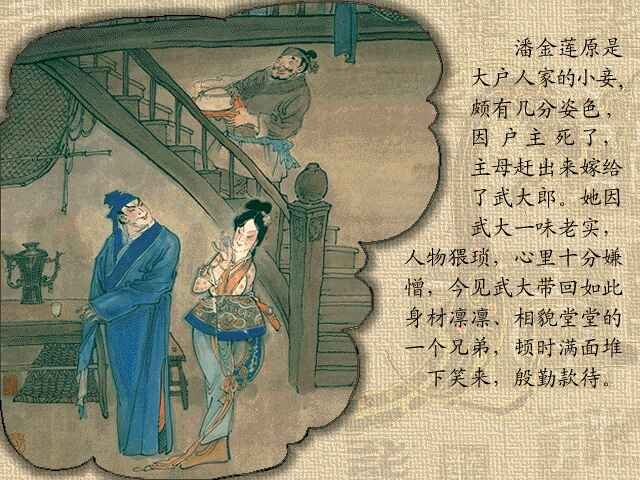 潘金莲原是
大户人家的小妾,
颇有几分姿色，
因户主死了，
主母赶出来嫁给
了武大郎。她因
武大一味老实，
人物猥琐，心里十分嫌
憎，今见武大带回如此
身材凛凛、相貌堂堂的
一个兄弟，顿时满面堆
下笑来，殷勤款待。